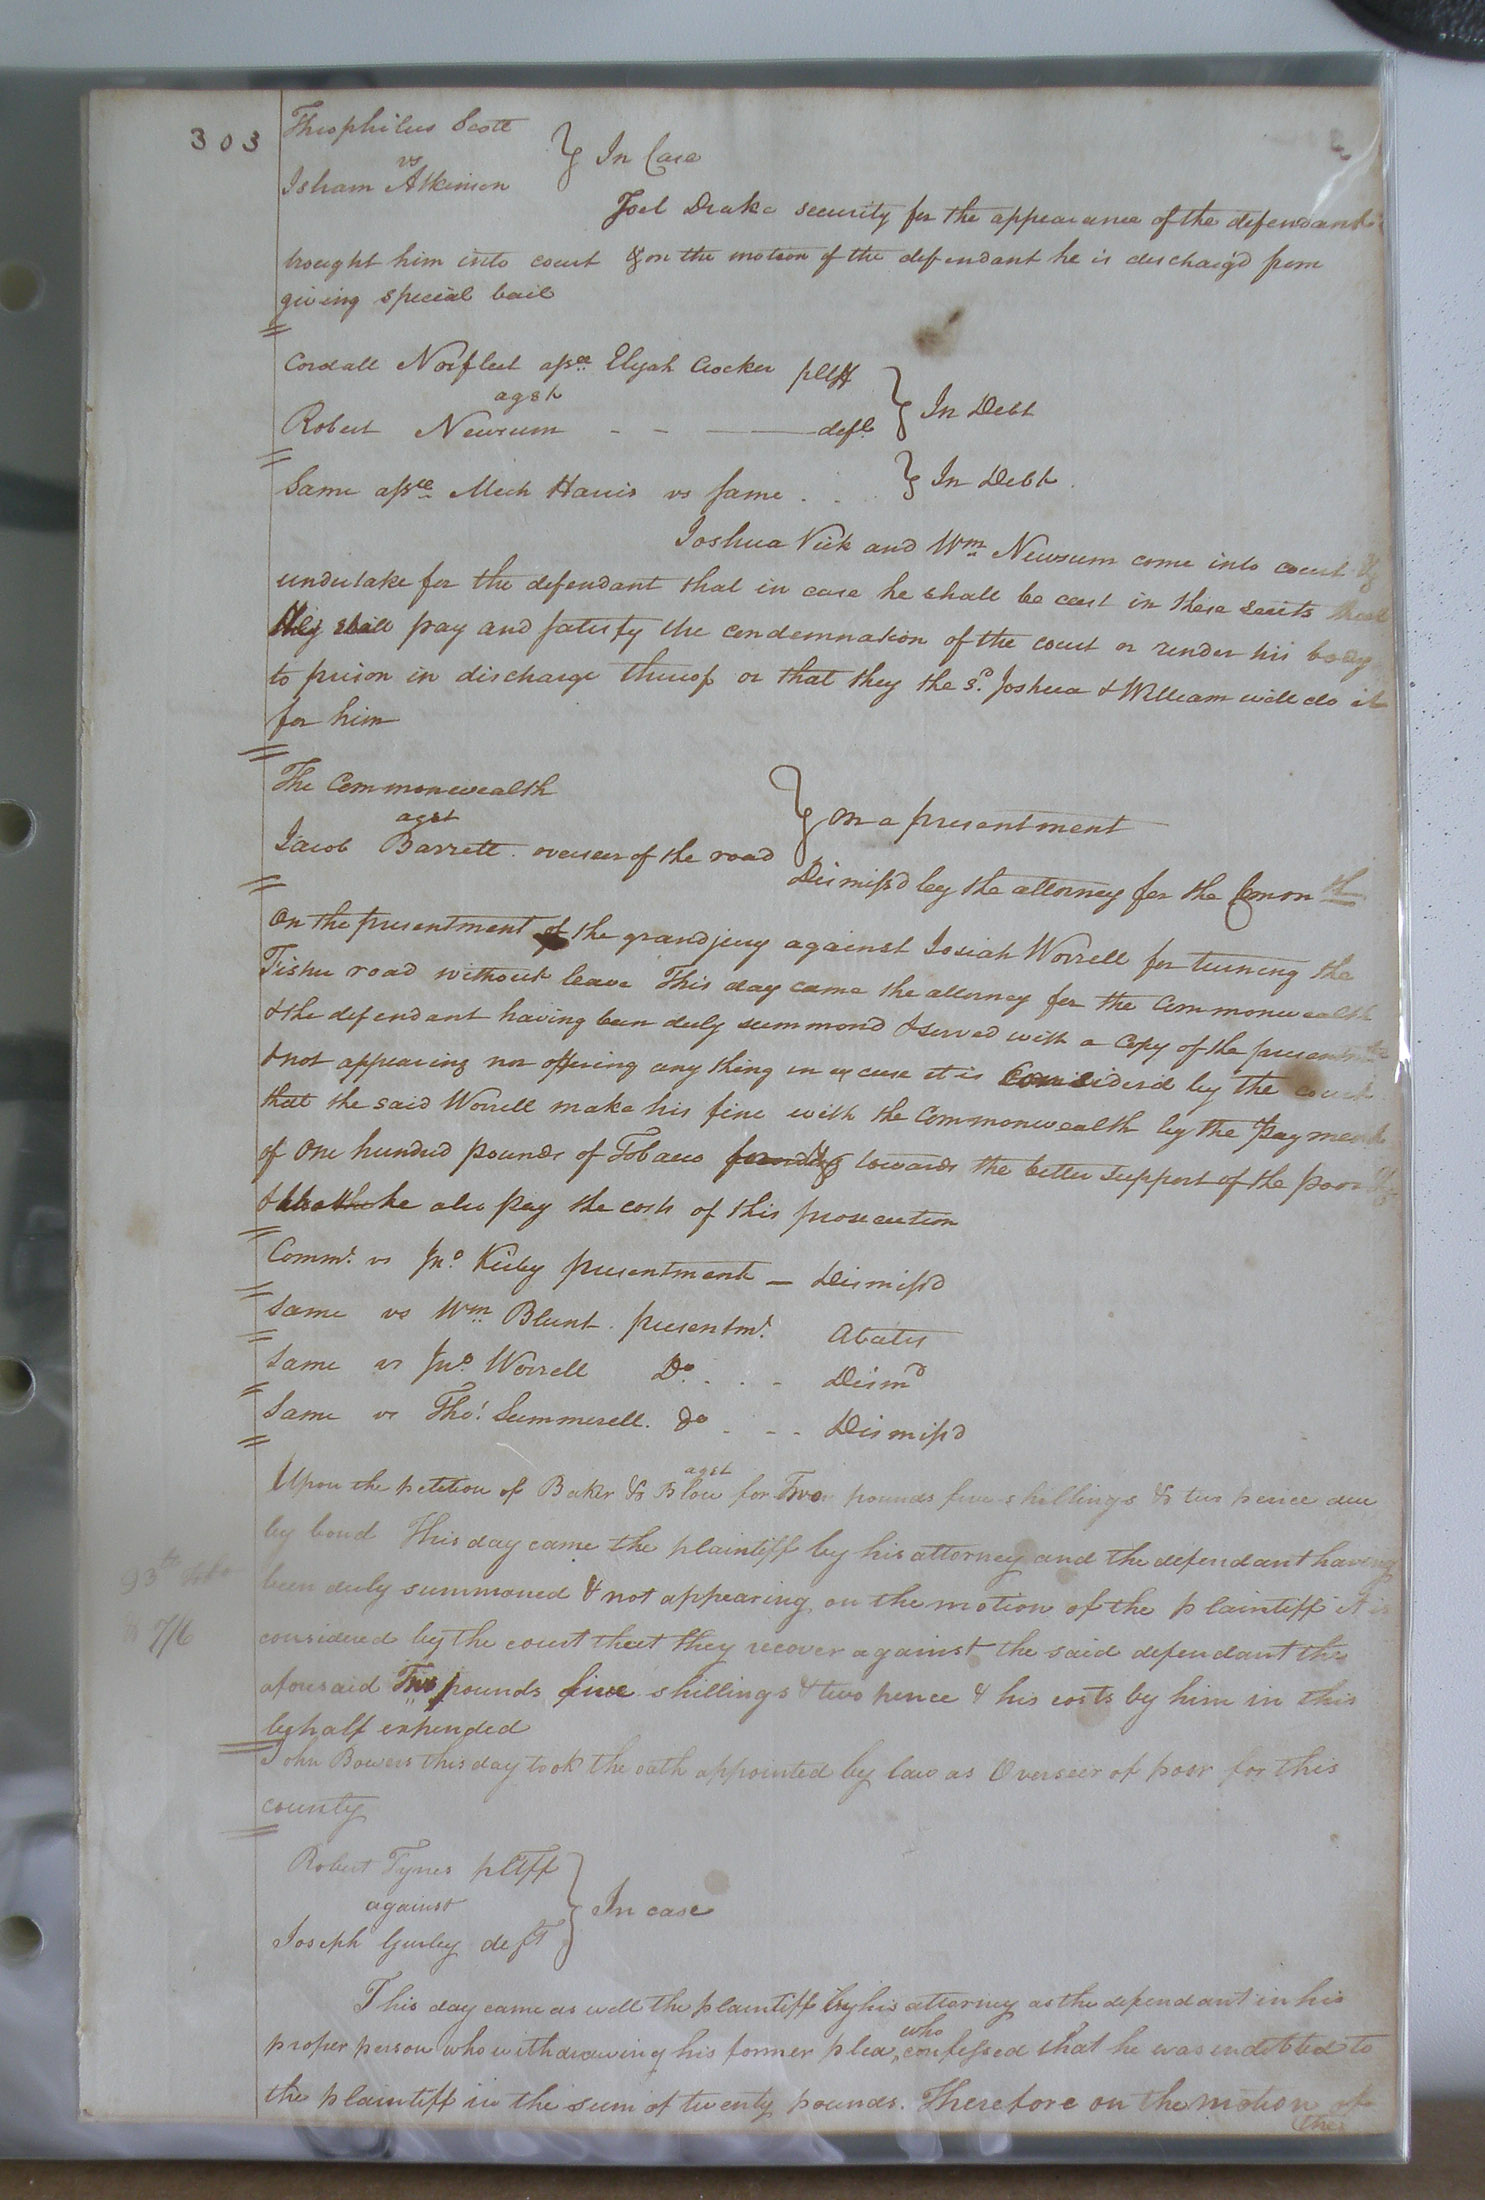 303
Theophilus Scott
vs
Isham Atkinson
} In Case
Joel Drake security for the appearance of the defendant
brought him into court & on the motion of the defendant he is discharg'd from
giving special bail
Cordall Norfleet assee Elijah Crocker pltff
agst
Robert Newsum - - — deft
} In Debt
Same assee Mich Harris vs same . . } In Debt.
Joshua Vick and Wm Newsum come into court &
undertake for the defendant that in case he shall be cast in these suits that
they shall pay and satisfy the condemnation of the court or render his body
to prison in discharge thereof or that they the sd. Joshua & William will do it
for him
The Commonwealth
agst
Jacob Barrett overseer of the road
} On a presentment
Dismiss'd by the attorney for the Comonth
On the presentment of the grandjury against Josiah Worrell for turning the
road without leave This day came the attorney for the Commonwealth
& the defendant having been duly summond & served with a Copy of the presentmt
& not appearing nor offering any thing in excuse it is Considerd by the court
that the said Worrell make his fine with the Commonwealth by the Payment
of One hundred pounds of Tobacco towards the better support of the poor &
he also pay the costs of this prosecution
Comm. vs Jno. Kirby presentment — Dismiss'd
Same vs Wm Blunt. presentmt. Abates
Same vs Jno. Worrell Do. . . - Dismd
Same vs Thos. Summerell. do . - - Dismiss'd
agst
Upon the petition of Baker & Blow for Two pounds five shillings & two pence due
by bond This day came the plaintiff by his attorney and the defendant having
been duly summoned & not appearing on the motion of the plaintiff it is
7/6
considered by the court that they recover against the said defendant the
aforesaid Two pounds five shillings & two pence & his costs by him in this
behalf expended
John Bowers this day took the oath appointed by law as Overseer of poor for this
county
Robert Tynes pltff
against
Joseph Gurley deft
} In case
This day came as well the plaintiff by his attorney as the defendant in his
who
proper person who withdrawing his former plea, confessed that he was indebted to
the plaintiff in the sum of twenty pounds. Therefore on the motion of
the